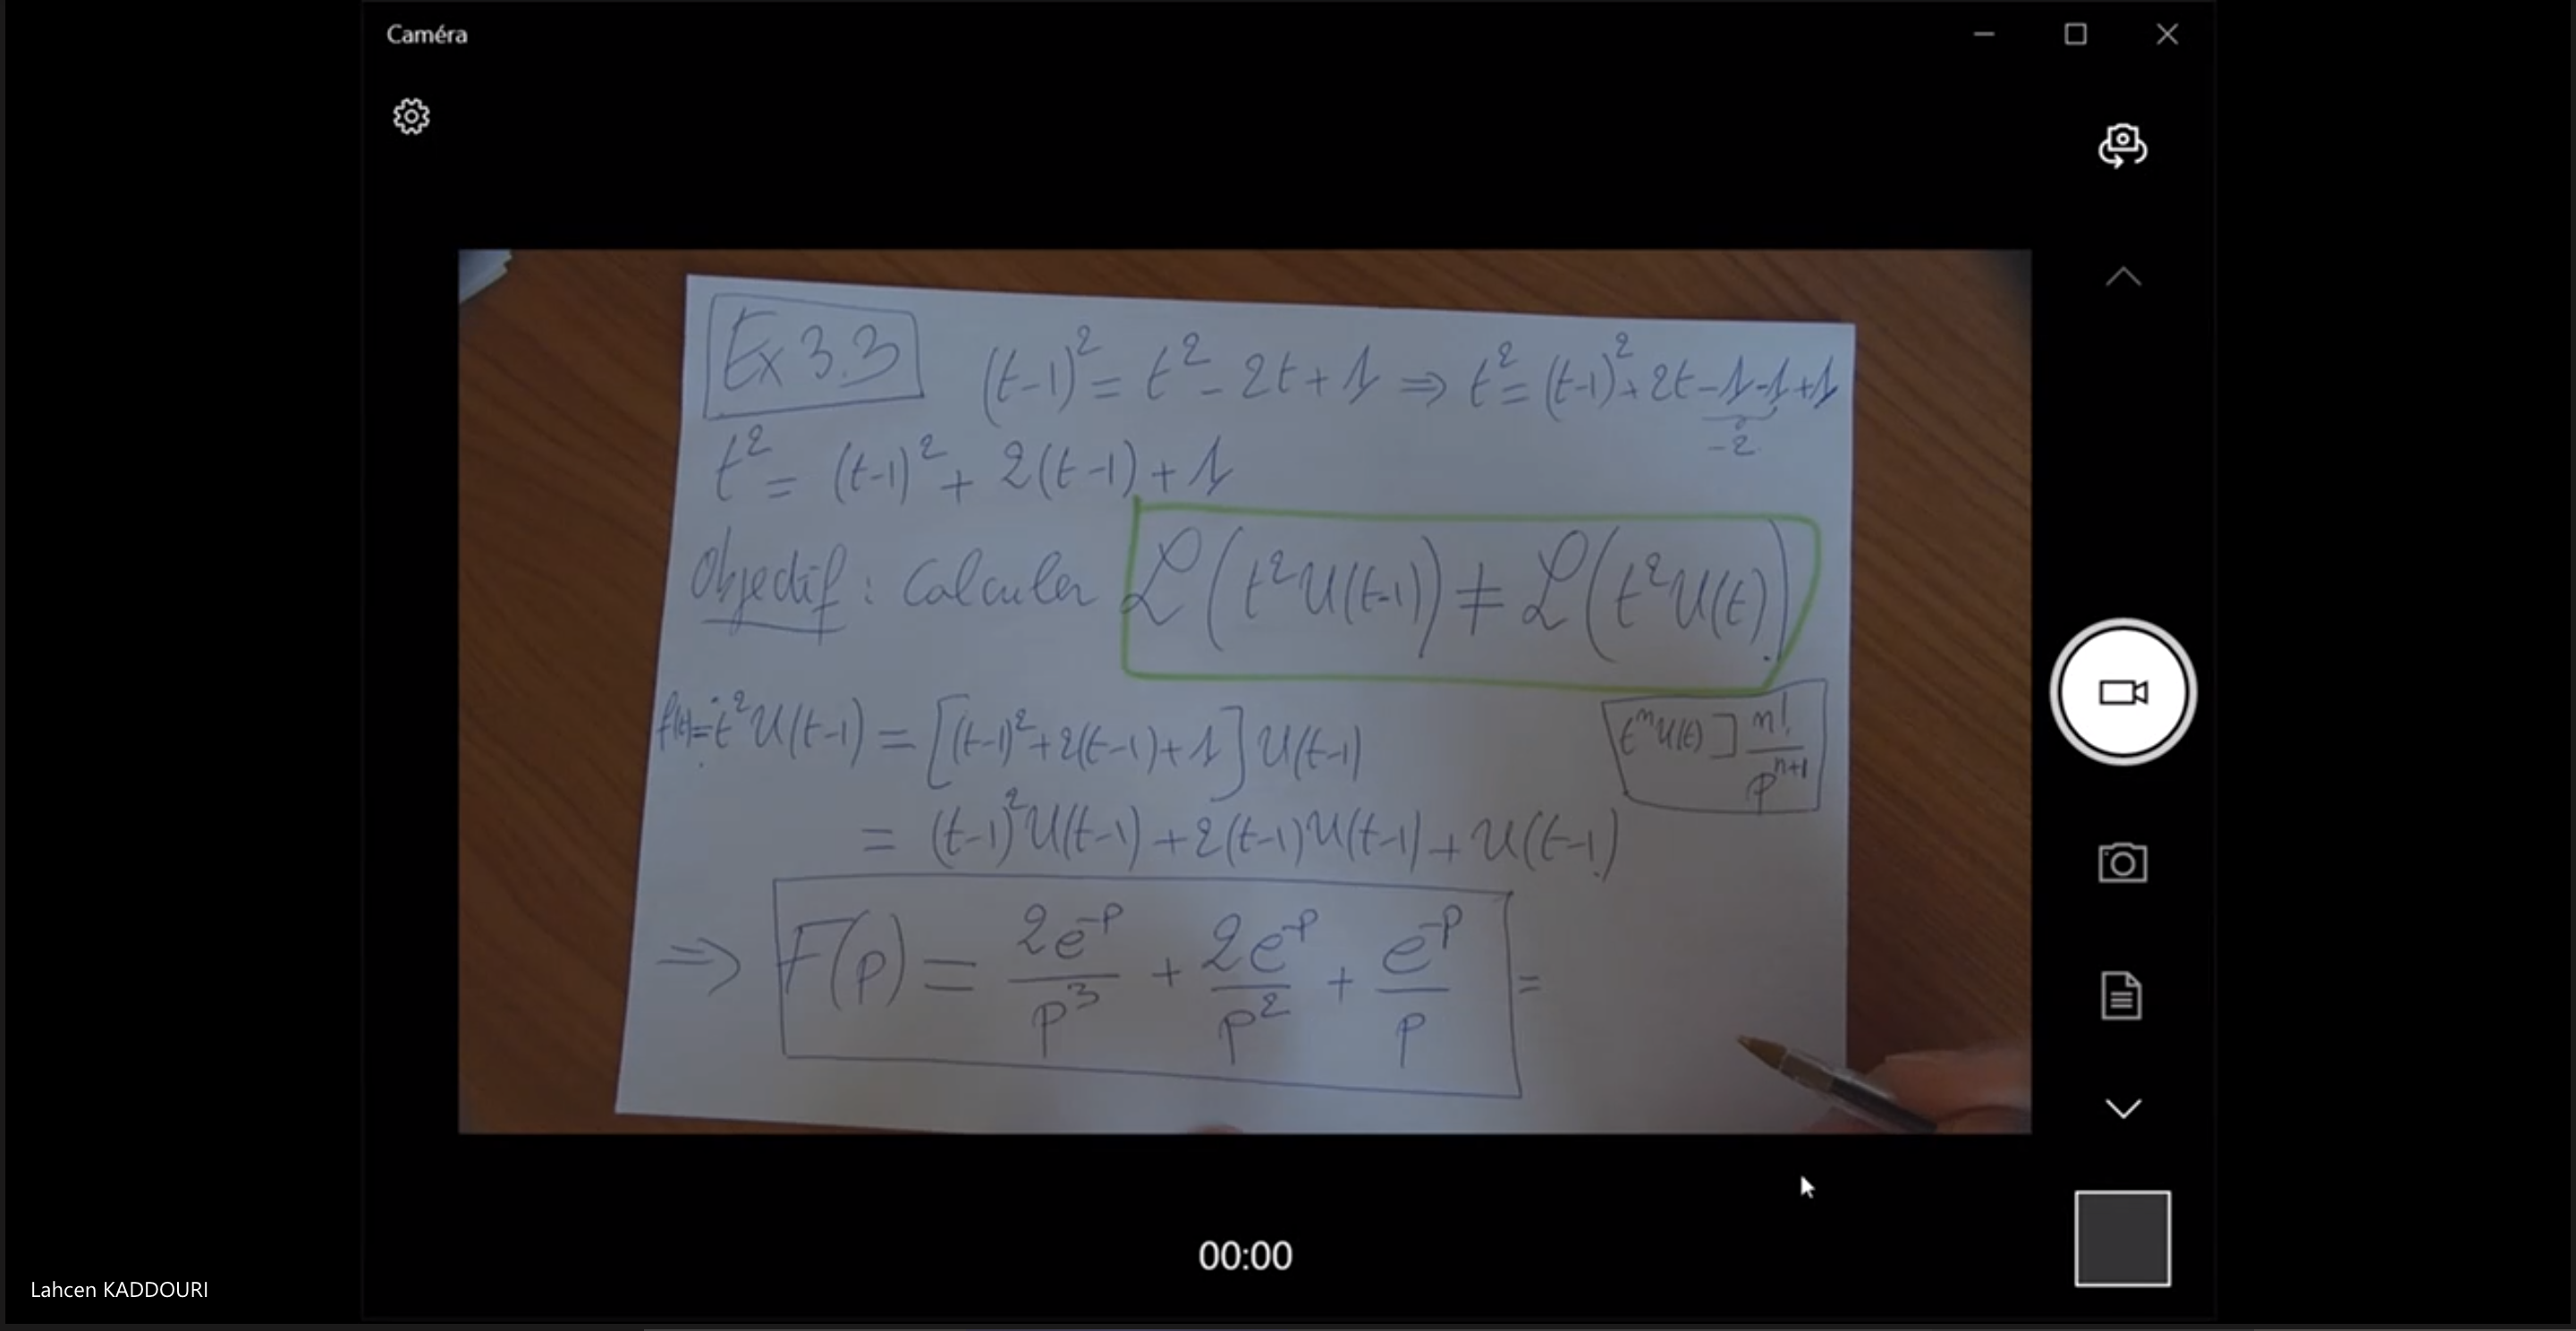 Caméra
Ex 3.3 (t-1)² = t² - 2t + 1 ⇒ t² = (t-1)² + 2t - 1 - 1 + 1
-2
t² = (t-1)² + 2(t-1) + 1
Objectif : Calculer ℒ(t² U(t-1)) ≠ ℒ(t² U(t))
f(t) = t² U(t-1) = [(t-1)² + 2(t-1) + 1] U(t-1)
t^n U(t) ] n! / p^(n+1)
= (t-1)² U(t-1) + 2(t-1) U(t-1) + U(t-1)
⇒ F(p) = 2e^-p / p³ + 2e^-p / p² + e^-p / p =
00:00
Lahcen KADDOURI